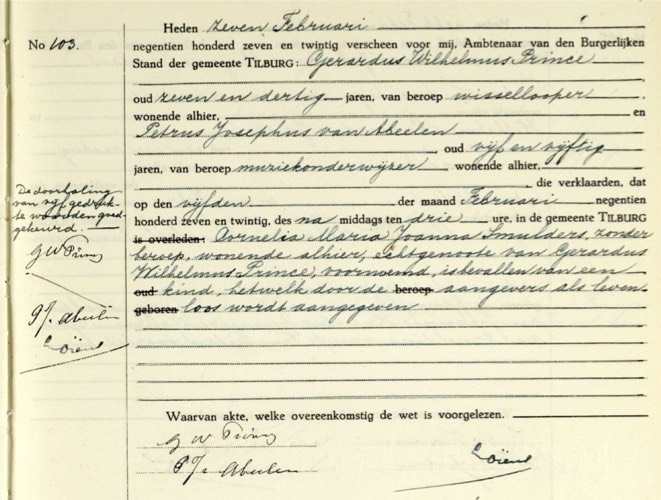 No 103.
Heden zeven Februari
negentien honderd zeven en twintig verscheen voor mij, Ambtenaar van den Burgerlijken
Stand der gemeente TILBURG: Gerardus Wilhelmus Prince
oud zeven en dertig jaren, van beroep wissellooper
wonende alhier, en
Petrus Josephus van Abeelen
, oud vijf en vijftig
jaren, van beroep muziekonderwijzer wonende alhier,
, die verklaarden, dat
op den vijfden der maand Februari negentien
honderd zeven en twintig, des na middags ten drie ure, in de gemeente TILBURG
is overleden: Cornelia Maria Joanna Smulders, zonder
beroep, wonende alhier, echtgenoote van Gerardus
Wilhelmus Prince, voornoemd, is bevallen van een
oud kind, hetwelk door de beroep aangevers als leven-
geboren loos wordt aangegeven
De doorhaling
van vijf gedruk-
te woorden goed-
gekeurd.
G W Prince
Abeelen
Waarvan akte, welke overeenkomstig de wet is voorgelezen.
G W Prince
Abeelen